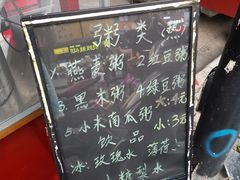 粥类(热)
1.燕麦粥 2.红豆粥
3.黑米粥 4.绿豆粥
5.小米南瓜粥 大:4元
小:3元
饮品
冰:玫瑰水 薄荷
糖梨水